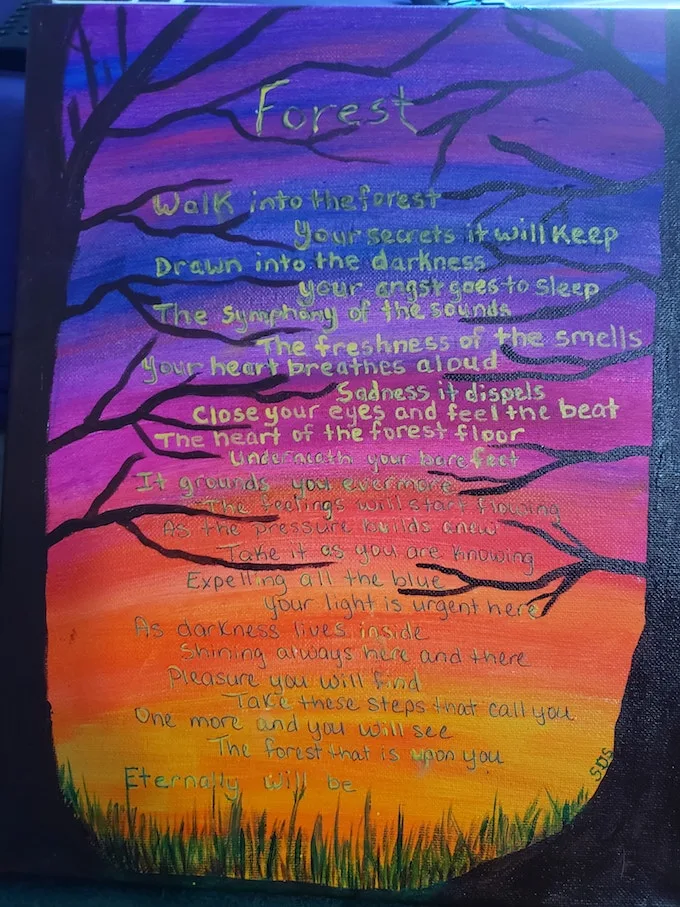 Forest
Walk into the forest
Your secrets it will Keep
Drawn into the darkness
your angst goes to sleep
The symphony of the sounds
The freshness of the smells
Your heart breathes aloud
Sadness it dispels
Close your eyes and feel the beat
The heart of the forest floor
Underneath your bare feet
It grounds you evermore
The feelings will start flowing
As the pressure builds anew
Take it as you are knowing
Expelling all the blue
Your light is urgent here
As darkness lives inside
Shining always here and there
Pleasure you will find
Take these steps that call you
One more and you will see
The forest that is upon you
Eternally will be
SDS